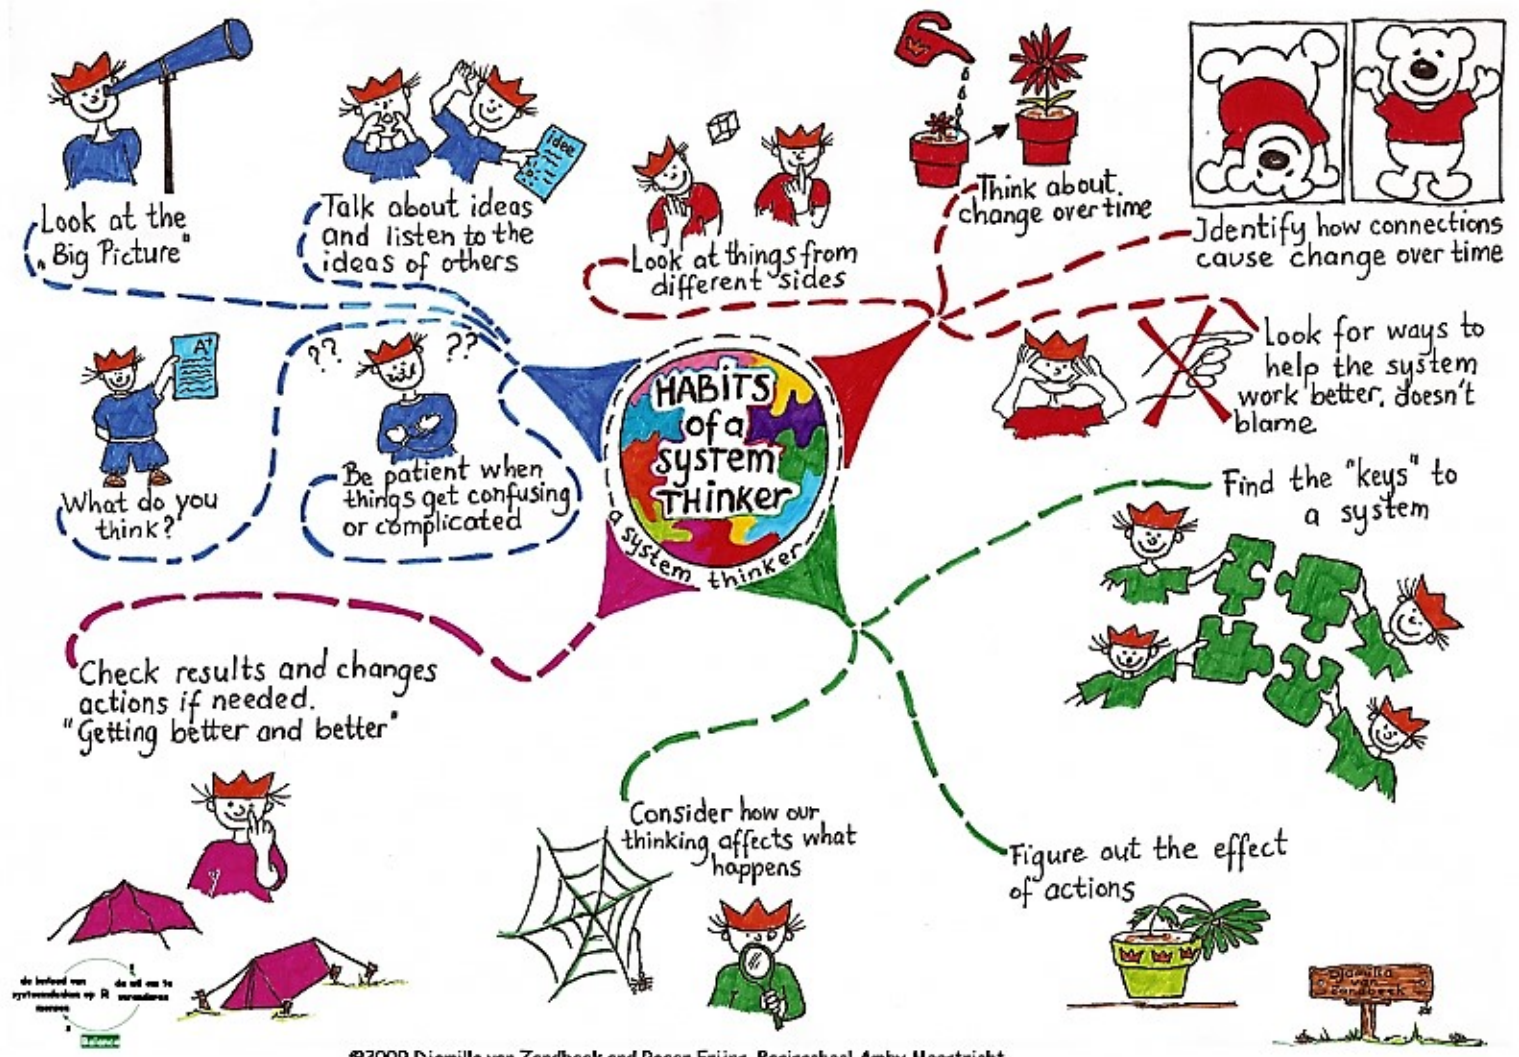 idee
Look at the
„Big Picture"
Talk about ideas
and listen to the
ideas of others
Look at things from
different sides
Think about
change over time
Identify how connections
cause change over time
A+
What do you
think?
??
??
Be patient when
things get confusing
or complicated
HABITS
of a
SYSTEM
THINKER
a system thinker...
Look for ways to
help the system
work better, doesn't
blame
Find the "keys" to
a system
Check results and changes
actions if needed.
"Getting better and better"
Consider how our
thinking affects what
happens
Figure out the effect
of actions
de invloed van
systeemdenken op
mensen
R
de wil om te
veranderen
Balance
Djamilla
van
Zandbeek
©2009 Djamilla van Zandbeek and